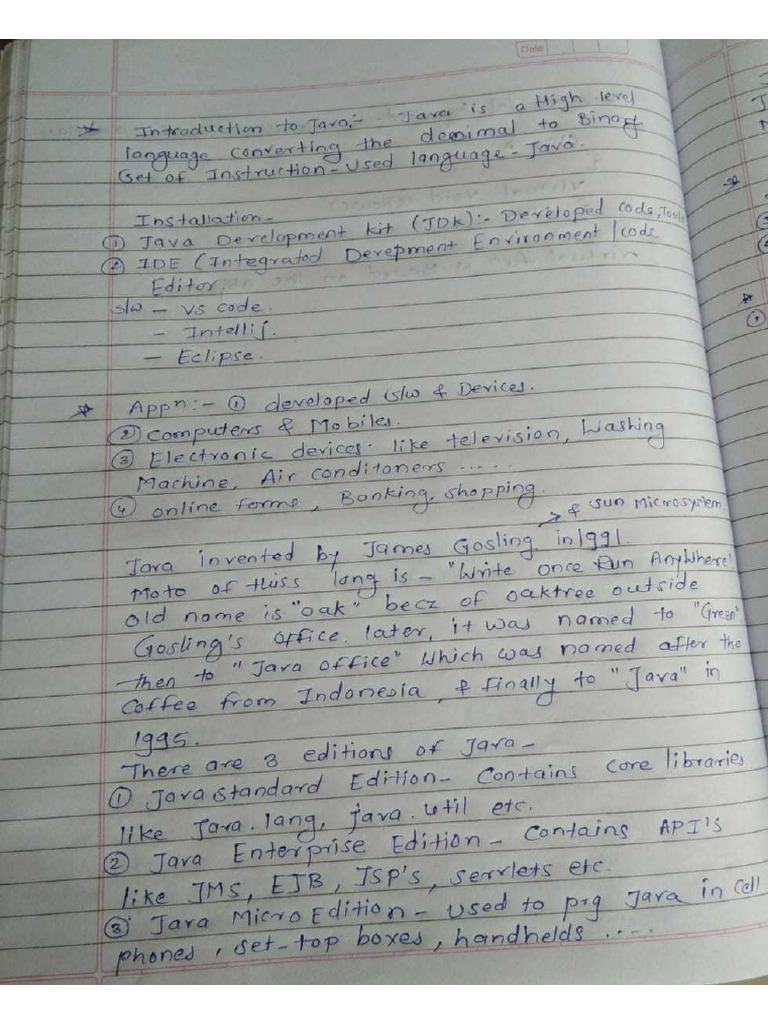 Date
* Introduction to Java:- Java is a High level
language converting the decimal to Binary
Set of Instruction - Used language - Java.
Installation -
① Java Development kit (JDK):- Developed code, Tools
② IDE (Integrated Derepment Environment / code
Editor.
s/w - V.S code.
- Intellij.
- Eclipse.
* Appn:- ① developed s/w & Devices.
② Computers & Mobiles.
③ Electronic devices. like television, Washing
Machine, Air conditoners .....
④ online forms, Banking, shopping.
→ & Sun Microsystem
Java invented by James Gosling in 1991.
Moto of thiss lang is - "Write once Run AnyWhere"
old name is "oak" becz of oaktree outside
Gosling's office. later, it was named to "Green"
then to "Java office" which was named after the
Coffee from Indonesia, & finally to "Java" in
1995.
There are 3 editions of Java -
① Java standard Edition - Contains core libraries
like Java.lang, java.util etc.
② Java Enterprise Edition - Contains API's
like JMS, EJB, JSP's, servlets etc.
③ Java Micro Edition - used to prg Java in cell
phones, set-top boxes, handhelds ....